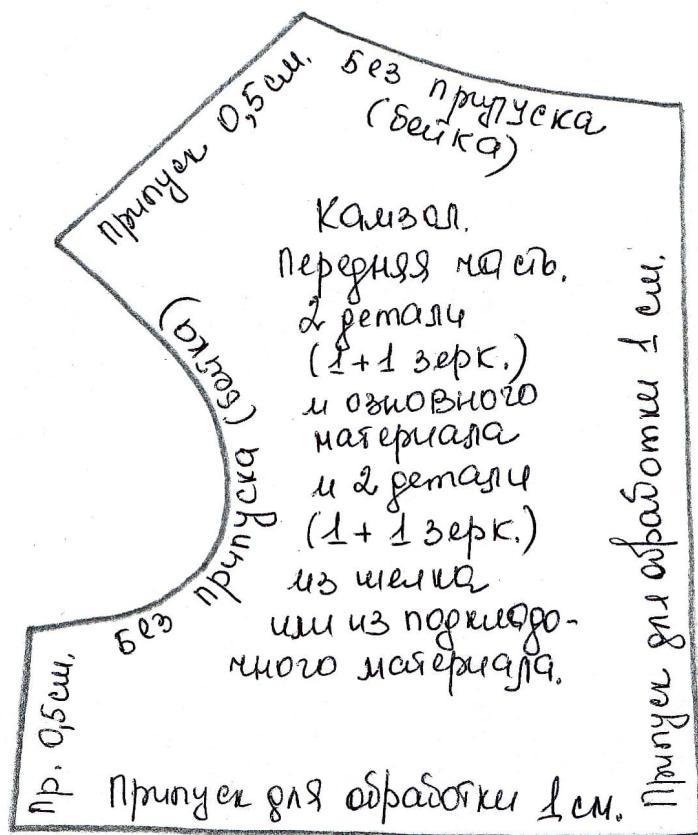 Припуск 0,5 см.
Без припуска
(бейка)
Камзол.
Передняя часть.
2 детали
(1+1 зерк.)
и озновного
материала
и 2 детали
(1+1 зерк.)
из шелка
или из подкладо-
чного материала.
Без припуска (бейка)
Пр. 0,5 см.
Припуск для обработки 1 см.
Припуск для обработки 1 см.